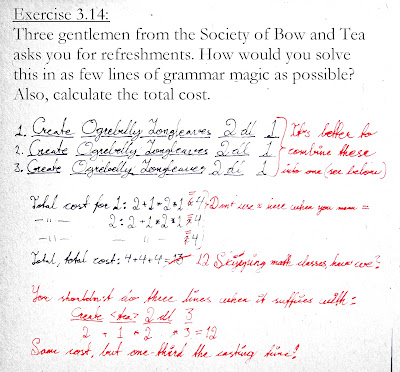 Exercise 3.14:
Three gentlemen from the Society of Bow and Tea
asks you for refreshments. How would you solve
this in as few lines of grammar magic as possible?
Also, calculate the total cost.
1. Create Ogrebelly Longleaves 2 dl 1 } It's better to
2. Create Ogrebelly Longleaves 2 dl 1 } combine these
3. Create Ogrebelly Longleaves 2 dl 1 } into one (see below)
Total cost for 1: 2+1*2*1 = 4 Don't use x here when you mean =
— 11 — 2: 2+1*2*1 = 4
— 11 — — 11 — = 4
Total, total cost: 4+4+4= 12 Skipping math classes, have we?
You shouldn't do three lines when it suffices with:
Create <tea> 2 dl 3
2 + 1 * 2 * 3 = 12
Same cost, but one-third the casting time!